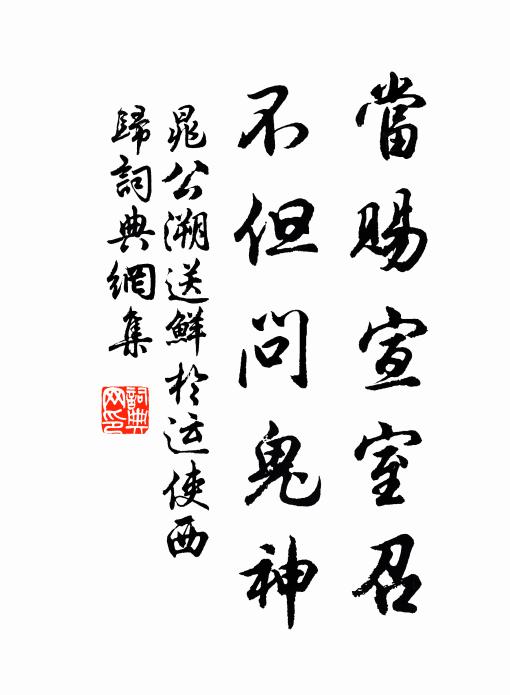 當賜宣室召
不但問鬼神
晁公溯送鮮於运使西
歸詞典網集
詞典网印